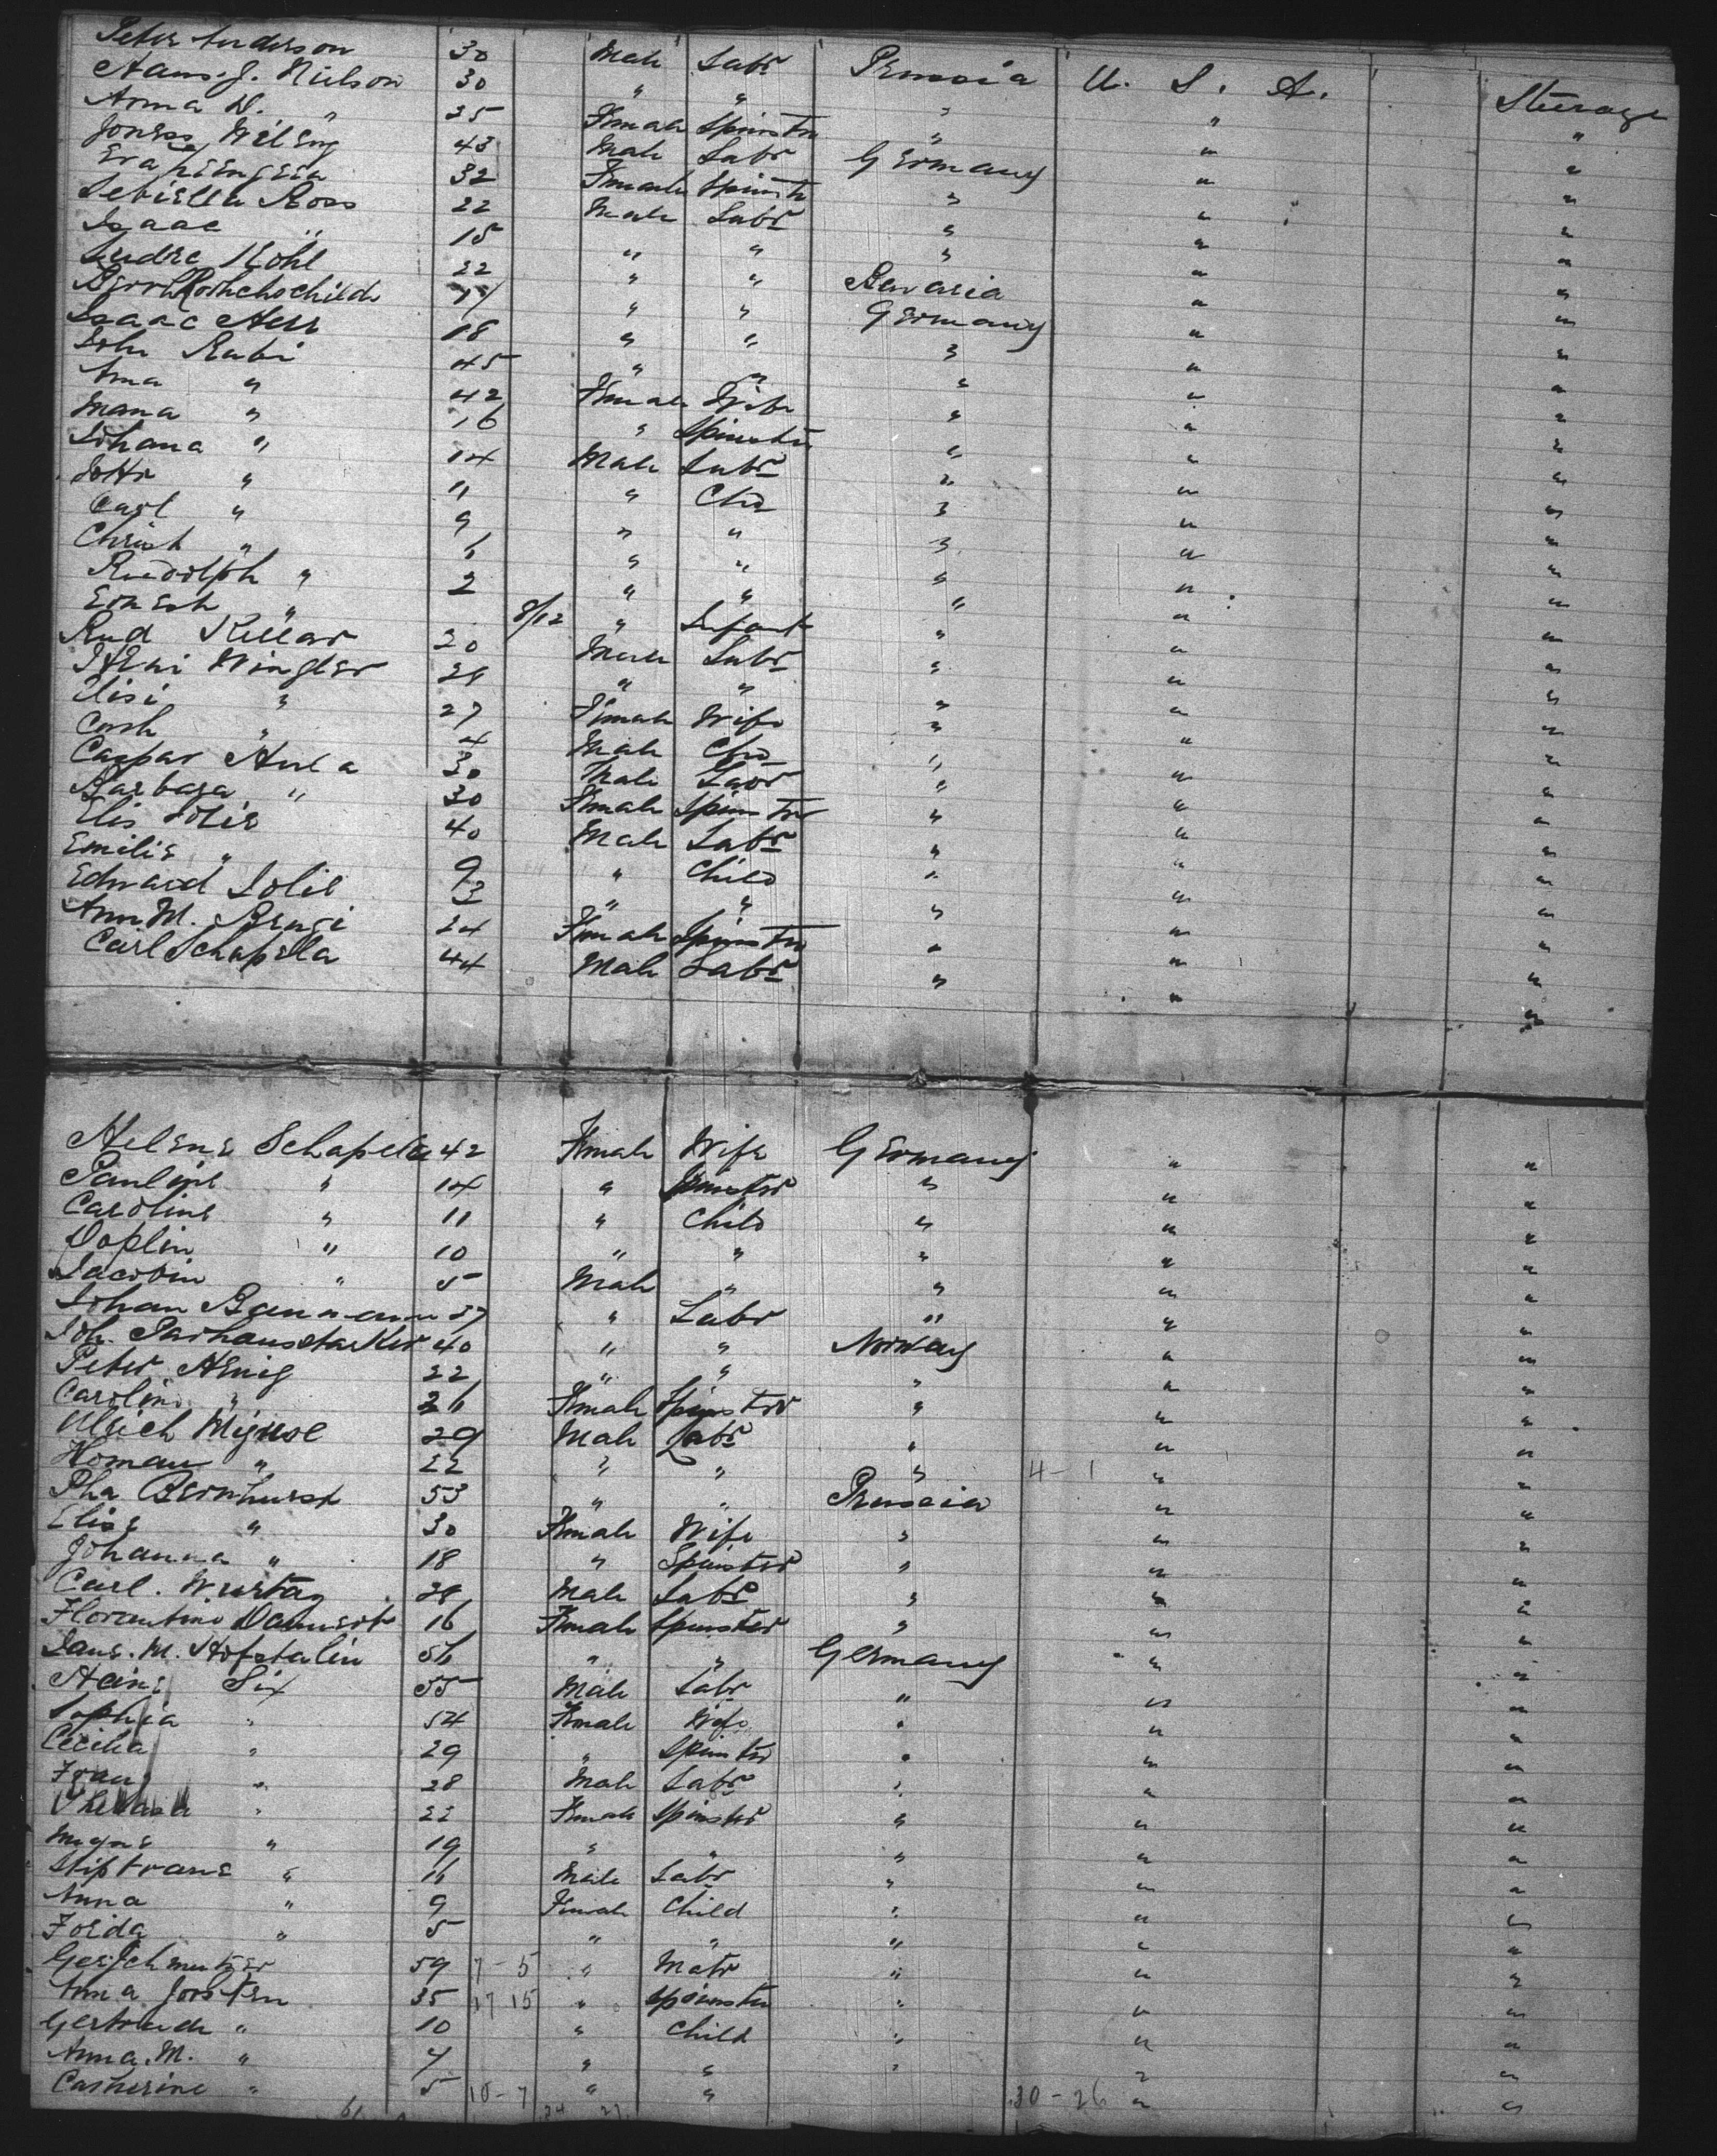 Peter Anderson 30 Male Labr Prussia U. S. A. Steerage
Hans. J. Nielson 30 " " " " "
Anna D. " 25 Female Spinster " " "
Jones Wileng 43 Male Labr Germany " "
Eva 32 Female Spinster " " "
Ross 22 Male Labr " " "
Isaac " 18 " " " " "
Kohl 22 " " Bavaria " "
Rothchochild 17 " " Germany " "
Isaac Herr 18 " " " " "
Joh Rabi 45 " " " " "
Anna " 42 Female Wife " " "
Maria " 16 " Spinster " " "
Johana " 14 Male Labr " " "
Otto " 11 " Chd " " "
Carl " 9 " " " " "
Christ " 6 " " " " "
Rudolph " 2 " " " " "
Ernest " 8/12 " Infant " " "
Rud Kellar 20 Male Labr " " "
Heni Wingler 28 " " " " "
Elisi " 27 Female Wife " " "
" 4 Male Chd " " "
Caspar 30 Male Labr " " "
Barbara " 30 Female Spinster " " "
Elis Solis 40 Male Labr " " "
Emilie " 9 " Child " " "
Edward Solis 3 " " " " "
Ann M. 24 Female Spinster " " "
Carl Schapella 44 Male Labr " " "
Helene Schapella 42 Female Wife Germany " "
Pauline " 14 " Spinster " " "
Caroline " 11 " Child " " "
Doplin " 10 " " " " "
Jacobin " 5 Male " " " "
Johan Baumann 57 " Labr " " "
Joh. 40 " " Norway " "
Peter Henig 22 " " " " "
Caroline " 26 Female Spinster " " "
Ulrich 29 Male Labr " " "
Homan " 22 " " " 4-1 " "
Pha Bernhurst 53 " " Prussia " "
Elise " 30 Female Wife " " "
Johanna " 18 " Spinster " " "
Carl. Wurtag 28 Male Labr " " "
Florantine 16 Female Spinster " " "
M. Hofstalin 56 " " Germany " "
Hans Six 55 Male Labr " " "
Sophia " 54 Female Wife " " "
Cecilia " 29 " Spinster " " "
Franz " 28 Male Labr " " "
Theresa " 22 Female Spinster " " "
" 19 " " " " "
" 16 Male Labr " " "
Anna " 9 Female Child " " "
Frida " 5 " " " " "
Schmutzer 59 7-5 " Matr " " "
Anna Joosten 35 17 15 " Spinster " " "
Gertrude " 10 " Child " " "
Anna. M. " 7 " " " " "
Catherine " 5 10-7 " " 30-26 " "